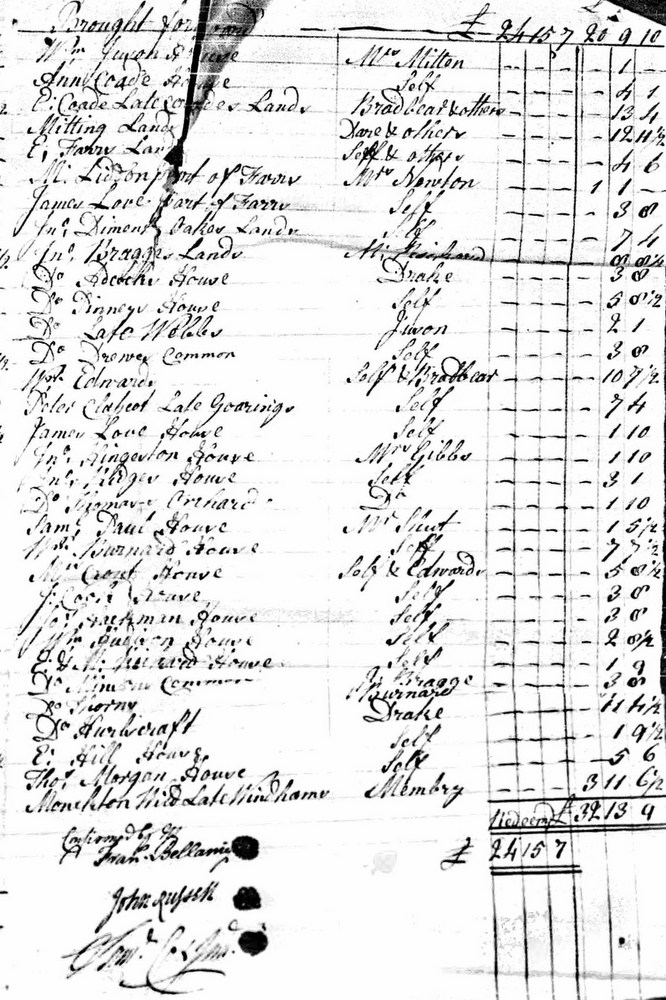 Brought forward £ 24 15 7 20 9 10
Wm Juson House Mrs Mitton - - - - 1 -
Ann Coade House Self - - - - 4 1
E: Coade Late Coades Lands Bradbear & others - - - - 13 4
Mitting Lands Dare & others - - - - 12 11 1/2
E: Farrs Land Self & others - - - - 4 6
M: Liddon part of Farrs Mrs Newton - - - 1 1 -
James Love part of Farrs Self - - - - 3 8
Jno. Diment Oakes Lands Self - - - - 7 4
Jno. Bragges Lands - - - - 8 8 1/4
Do Adcocks House Drake - - - - 3 8
Do Dinneys House Self - - - - 5 8 1/2
Do Late Webbs Juson - - - - 2 1
Do Drewes Common Self - - - - 3 8
Wm Edwards Self & Bradbear - - - - 10 7 1/2
Peter Late Goarings Self - - - - 7 4
James Love House Self - - - - 1 10
Jno. Hingeston House Mrs Gibbs - - - - 1 10
Jno. Hodges House Self - - - - 3 1
Do Thomas's Orchard Do - - - - 1 10
Saml Paul House Mr Shut - - - - 1 5 1/2
Wm Burnard House Self - - - - 7 7 1/2
House Self & Edwards - - - - 5 8 1/2
J: Cook House Self - - - - 3 8
Jos. Hackman House Self - - - - 3 8
Wm Hudson House Self - - - - 2 8 1/2
E: & M: House Self - - - - 1 9
Do Common J: Bragge - - - - 3 8
Do Thorns Burnard
Do Hurlscraft Drake - - - - 11 4 1/2
E: Hill House Self - - - - 1 9 1/2
Thos. Morgan House Self - - - - 5 6
Monckton Wild Late Windhams Membry - - - 3 11 6 1/2
Redeemd £ 32 13 9
£ 24 15 7
Confirmed by us
Fran. Bellamy
John Russell